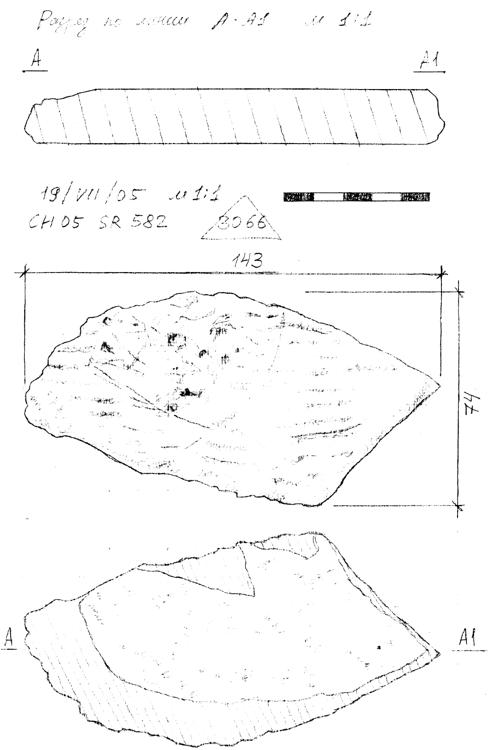 Разрез по линии А-А1 м 1:1
А А1
19/VII/05 м 1:1
CH 05 SR 582 3066
143
74
А А1